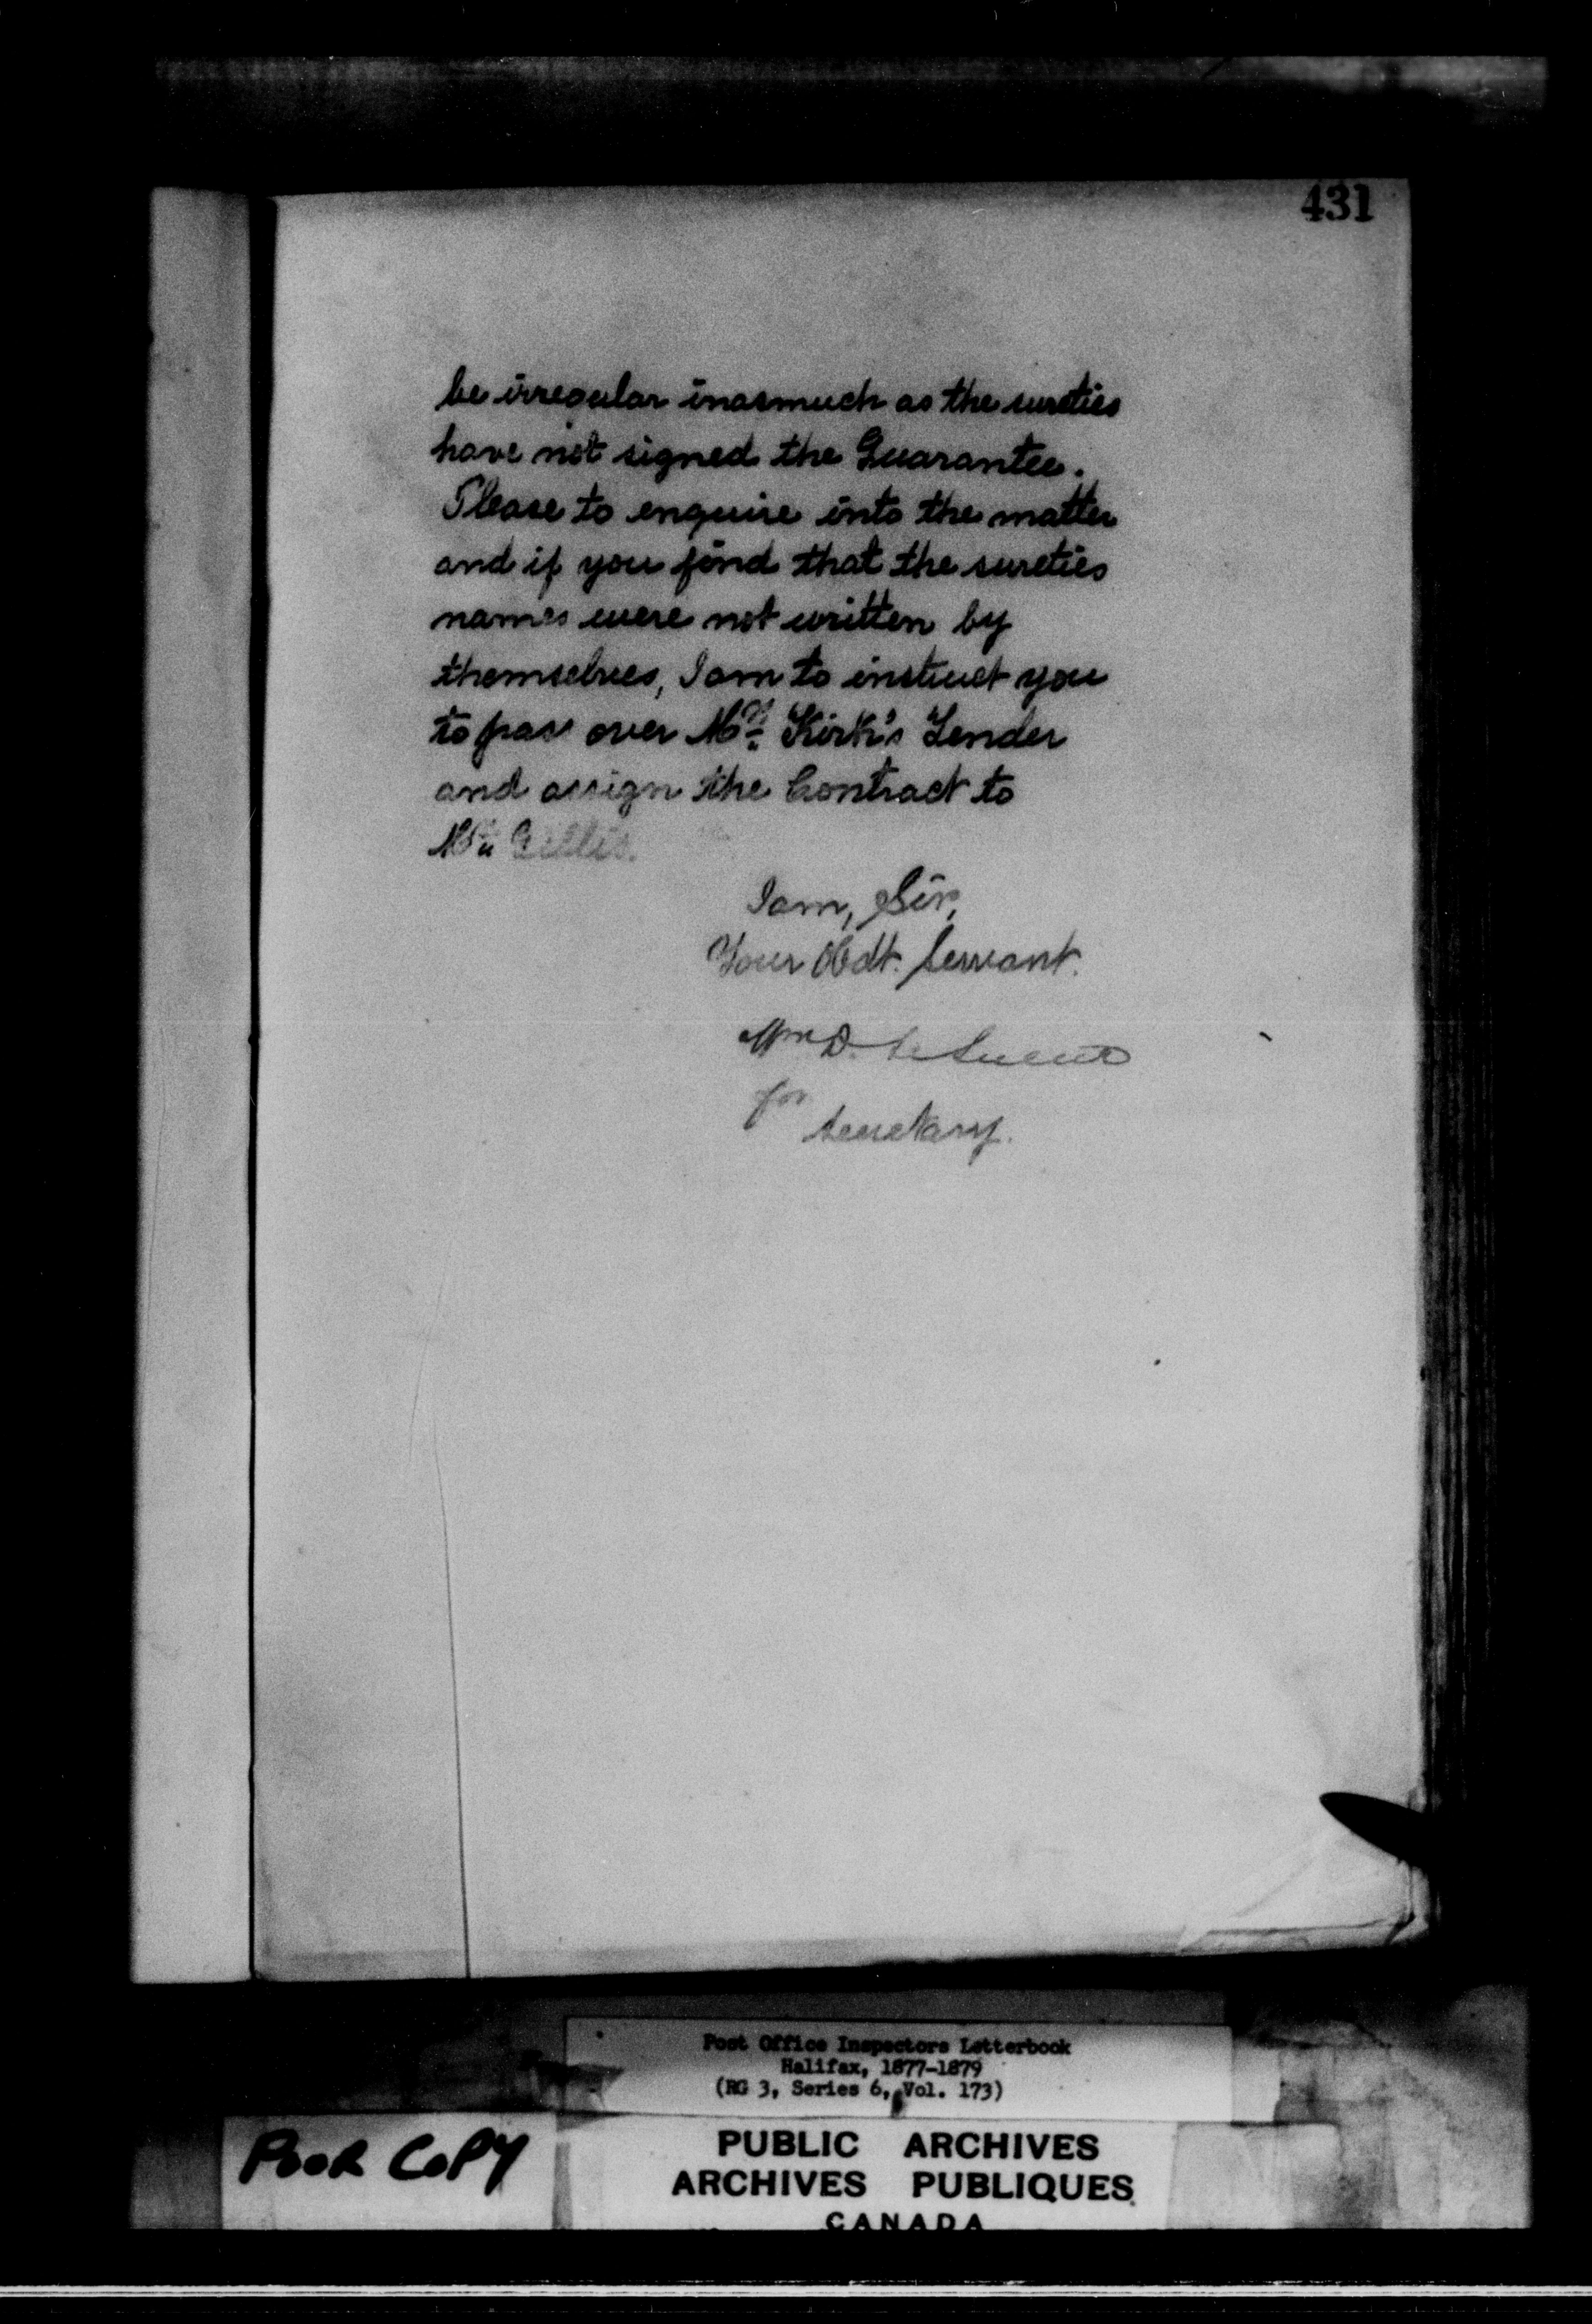 431
be irregular inasmuch as the sureties
have not signed the Guarantee.
Please to enquire into the matter
and if you find that the sureties
names were not written by
themselves, I am to instruct you
to pass over Mr. Kirk's Tender
and assign the Contract to
Mr. Gillis.
I am, Sir,
Your Obdt. Servant.
Wm D. Le Sueur
for
Secretary.
Post Office Inspectors Letterbook
Halifax, 1877-1879
(RG 3, Series 6, Vol. 173)
POOR COPY
PUBLIC ARCHIVES
ARCHIVES PUBLIQUES
CANADA